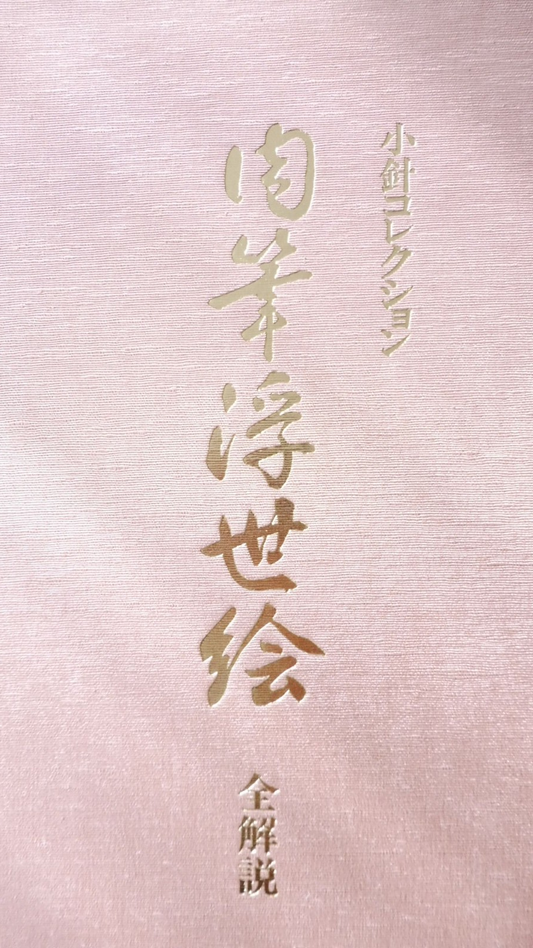 小針コレクション
肉筆浮世絵
全解説